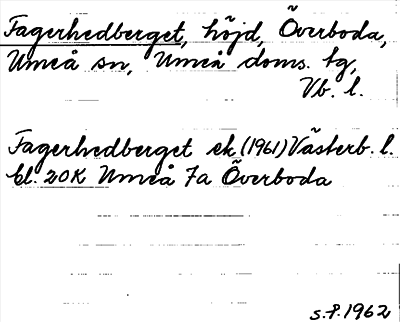 Fagerhedberget, höjd, Överboda,
Umeå sn, Umeå doms. tg,
Vb. l.
Fagerhedberget ek (1961) Västerb. l.
bl. 20K Umeå 7a Överboda
s.f. 1962